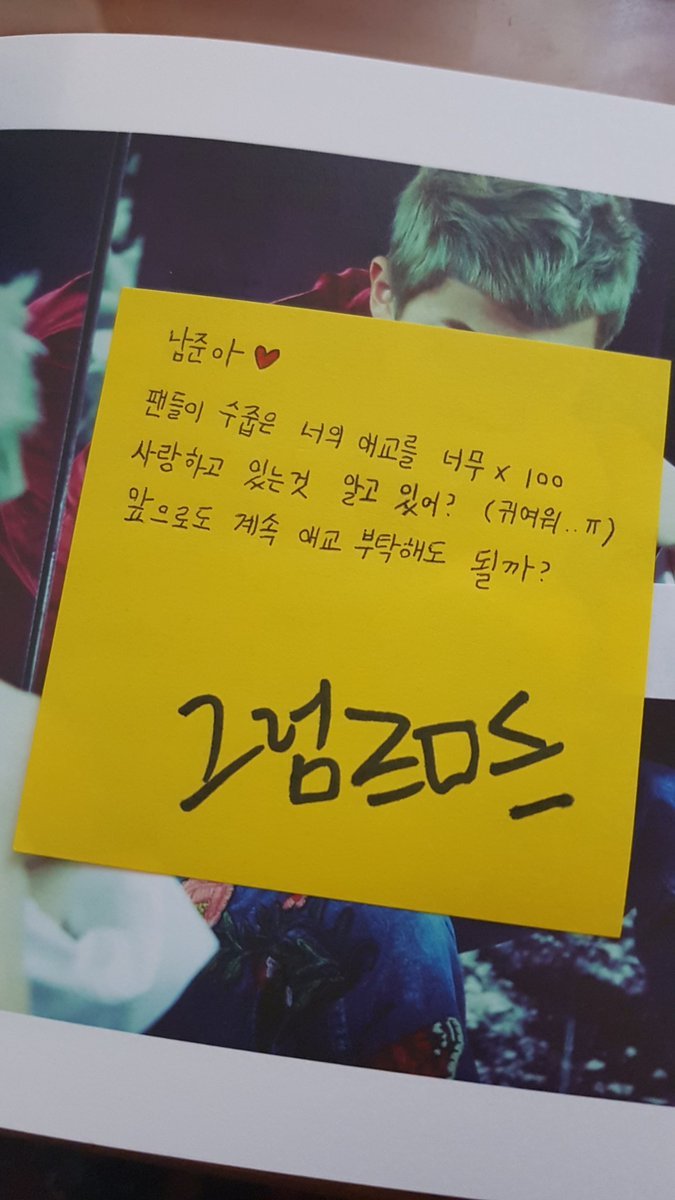 남준아 ♥
팬들이 수줍은 너의 애교를 너무 x 100
사랑하고 있는것 알고 있어? (귀여워..ㅠ)
앞으로도 계속 애교 부탁해도 될까?
그럼